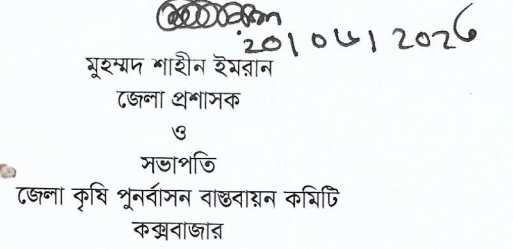 মুহম্মদ শাহীন ইমরান
জেলা প্রশাসক
ও
সভাপতি
জেলা কৃষি পুনর্বাসন বাস্তবায়ন কমিটি
কক্সবাজার